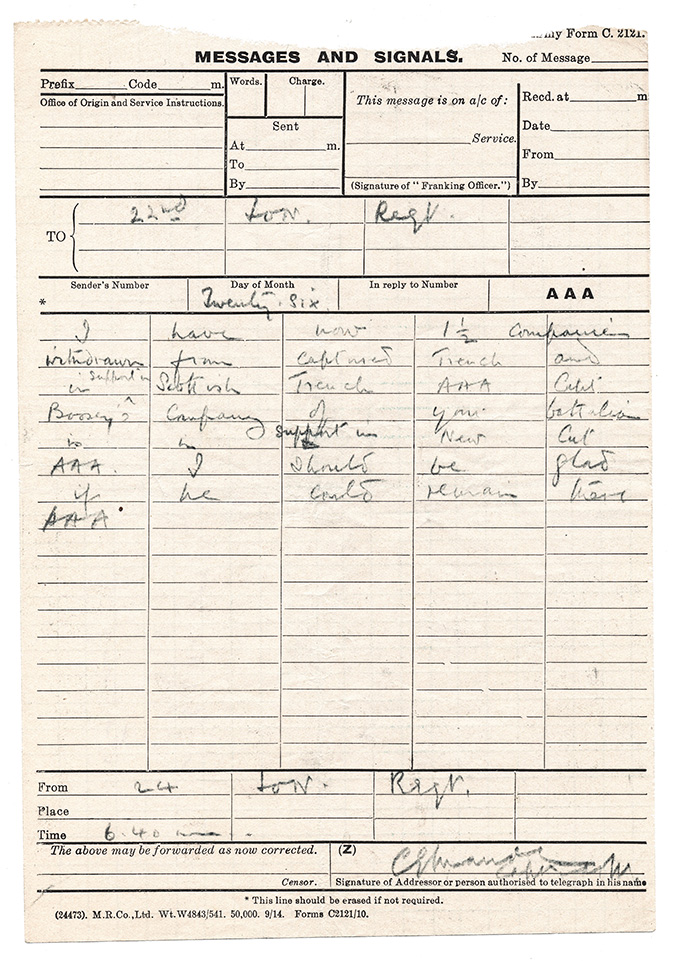 my Form C. 2121.
MESSAGES AND SIGNALS. No. of Message
Prefix Code m. Words. Charge. This message is on a/c of: Recd. at m
Office of Origin and Service Instructions. Sent Service. Date
At m. From
To
By (Signature of "Franking Officer.") By
TO 22nd Lon. Regt.
Sender's Number Day of Month In reply to Number AAA
* Twenty Six
I have now 1½ Companies
withdrawn from captured Trench and
in support in Scottish Trench AAA Capt
Boosey's Company of your battalion
is in support in New Cut
AAA. I should be glad
if he could remain there
AAA
From 24 Lon. Regt.
Place
Time 6.40
The above may be forwarded as now corrected. (Z)
Censor. Signature of Addressor or person authorised to telegraph in his name
* This line should be erased if not required.
(24473). M.R.Co.,Ltd. Wt.W4843/541. 50,000. 9/14. Forms C2121/10.